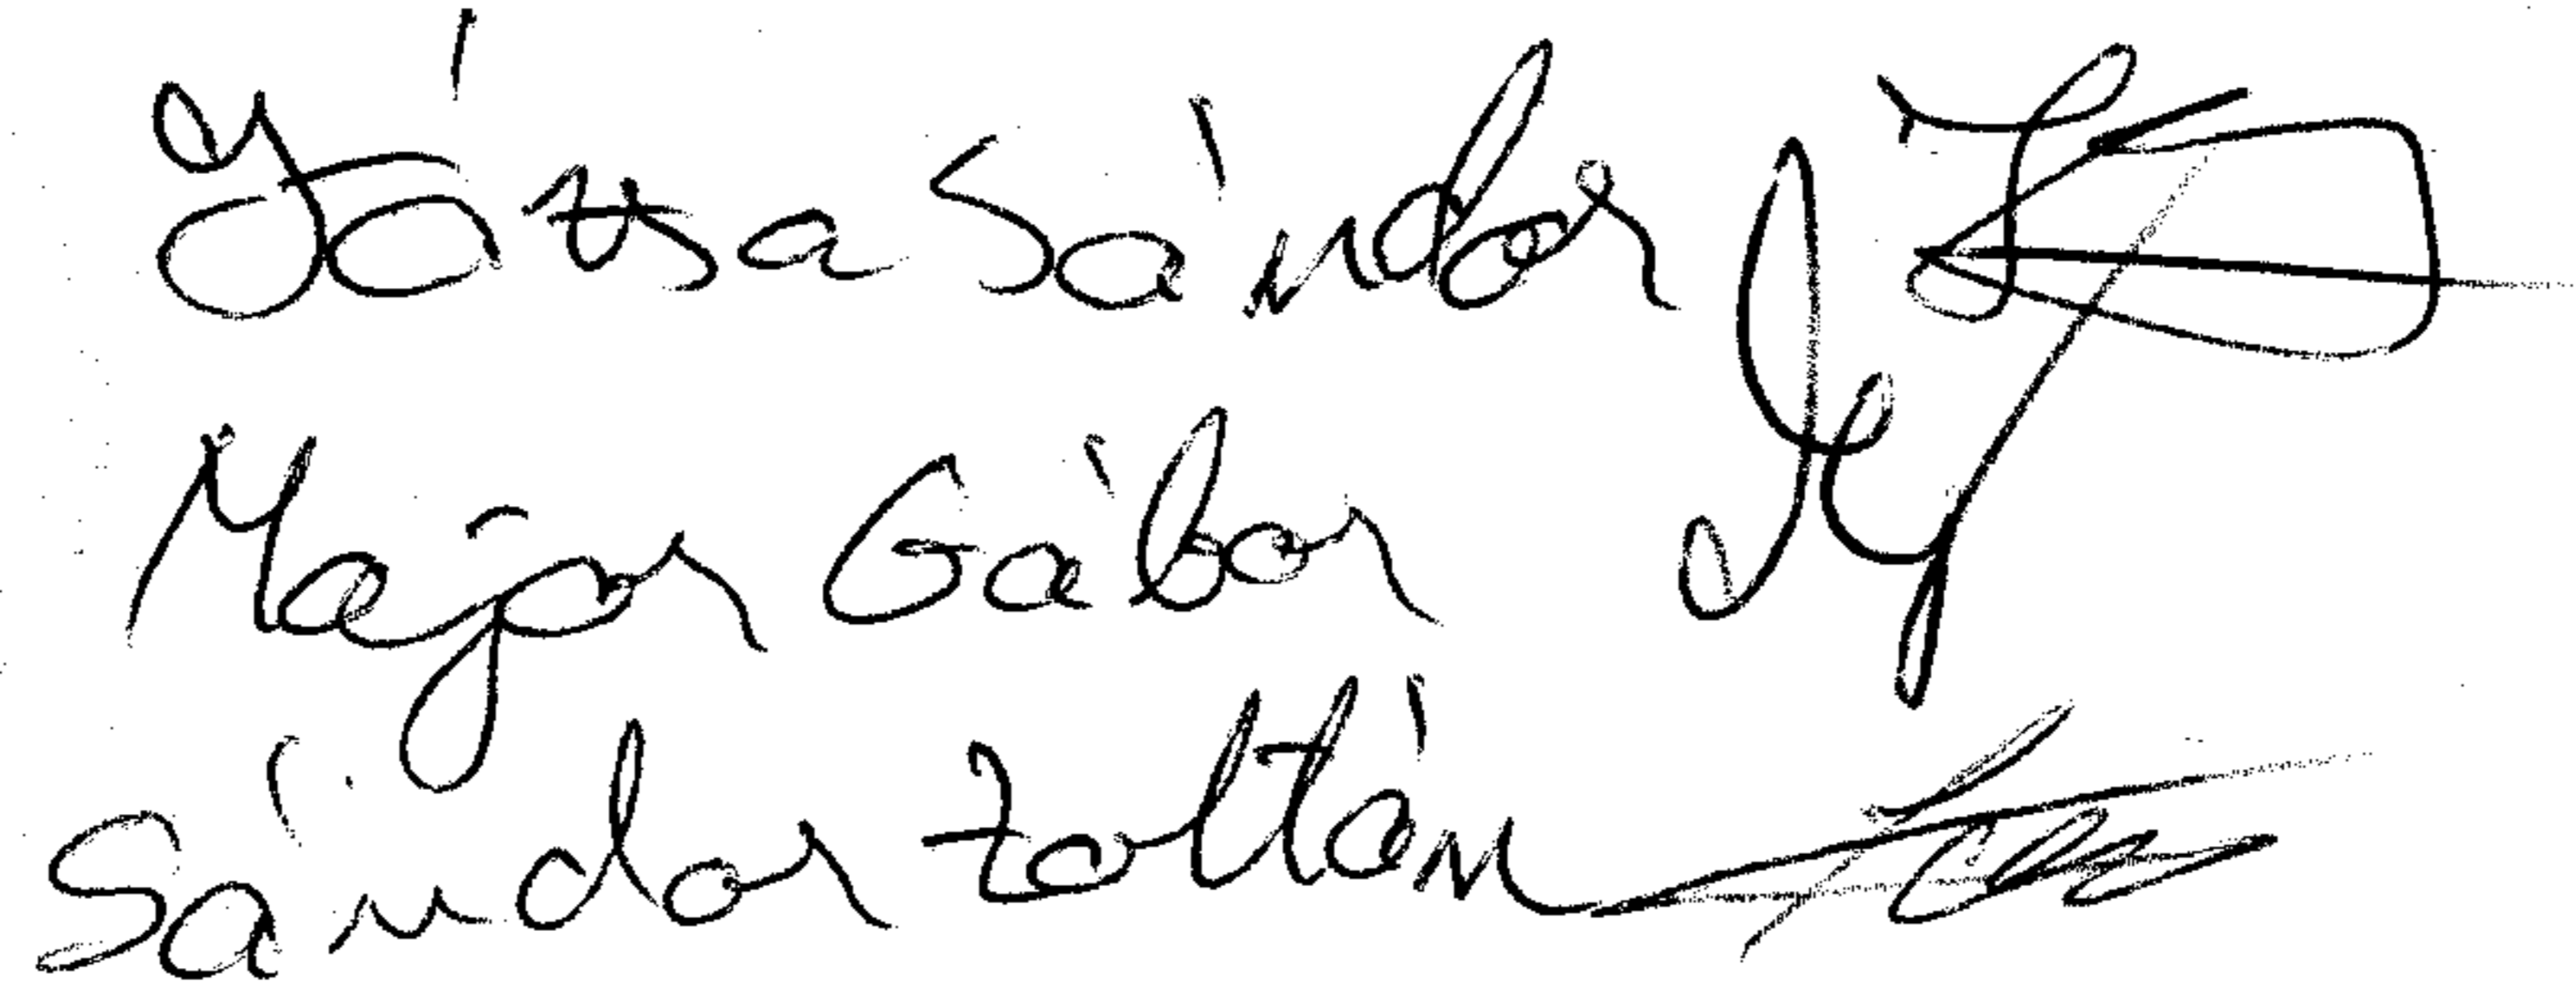 Józsa Sándor
Major Gábor
Sándor Zoltán